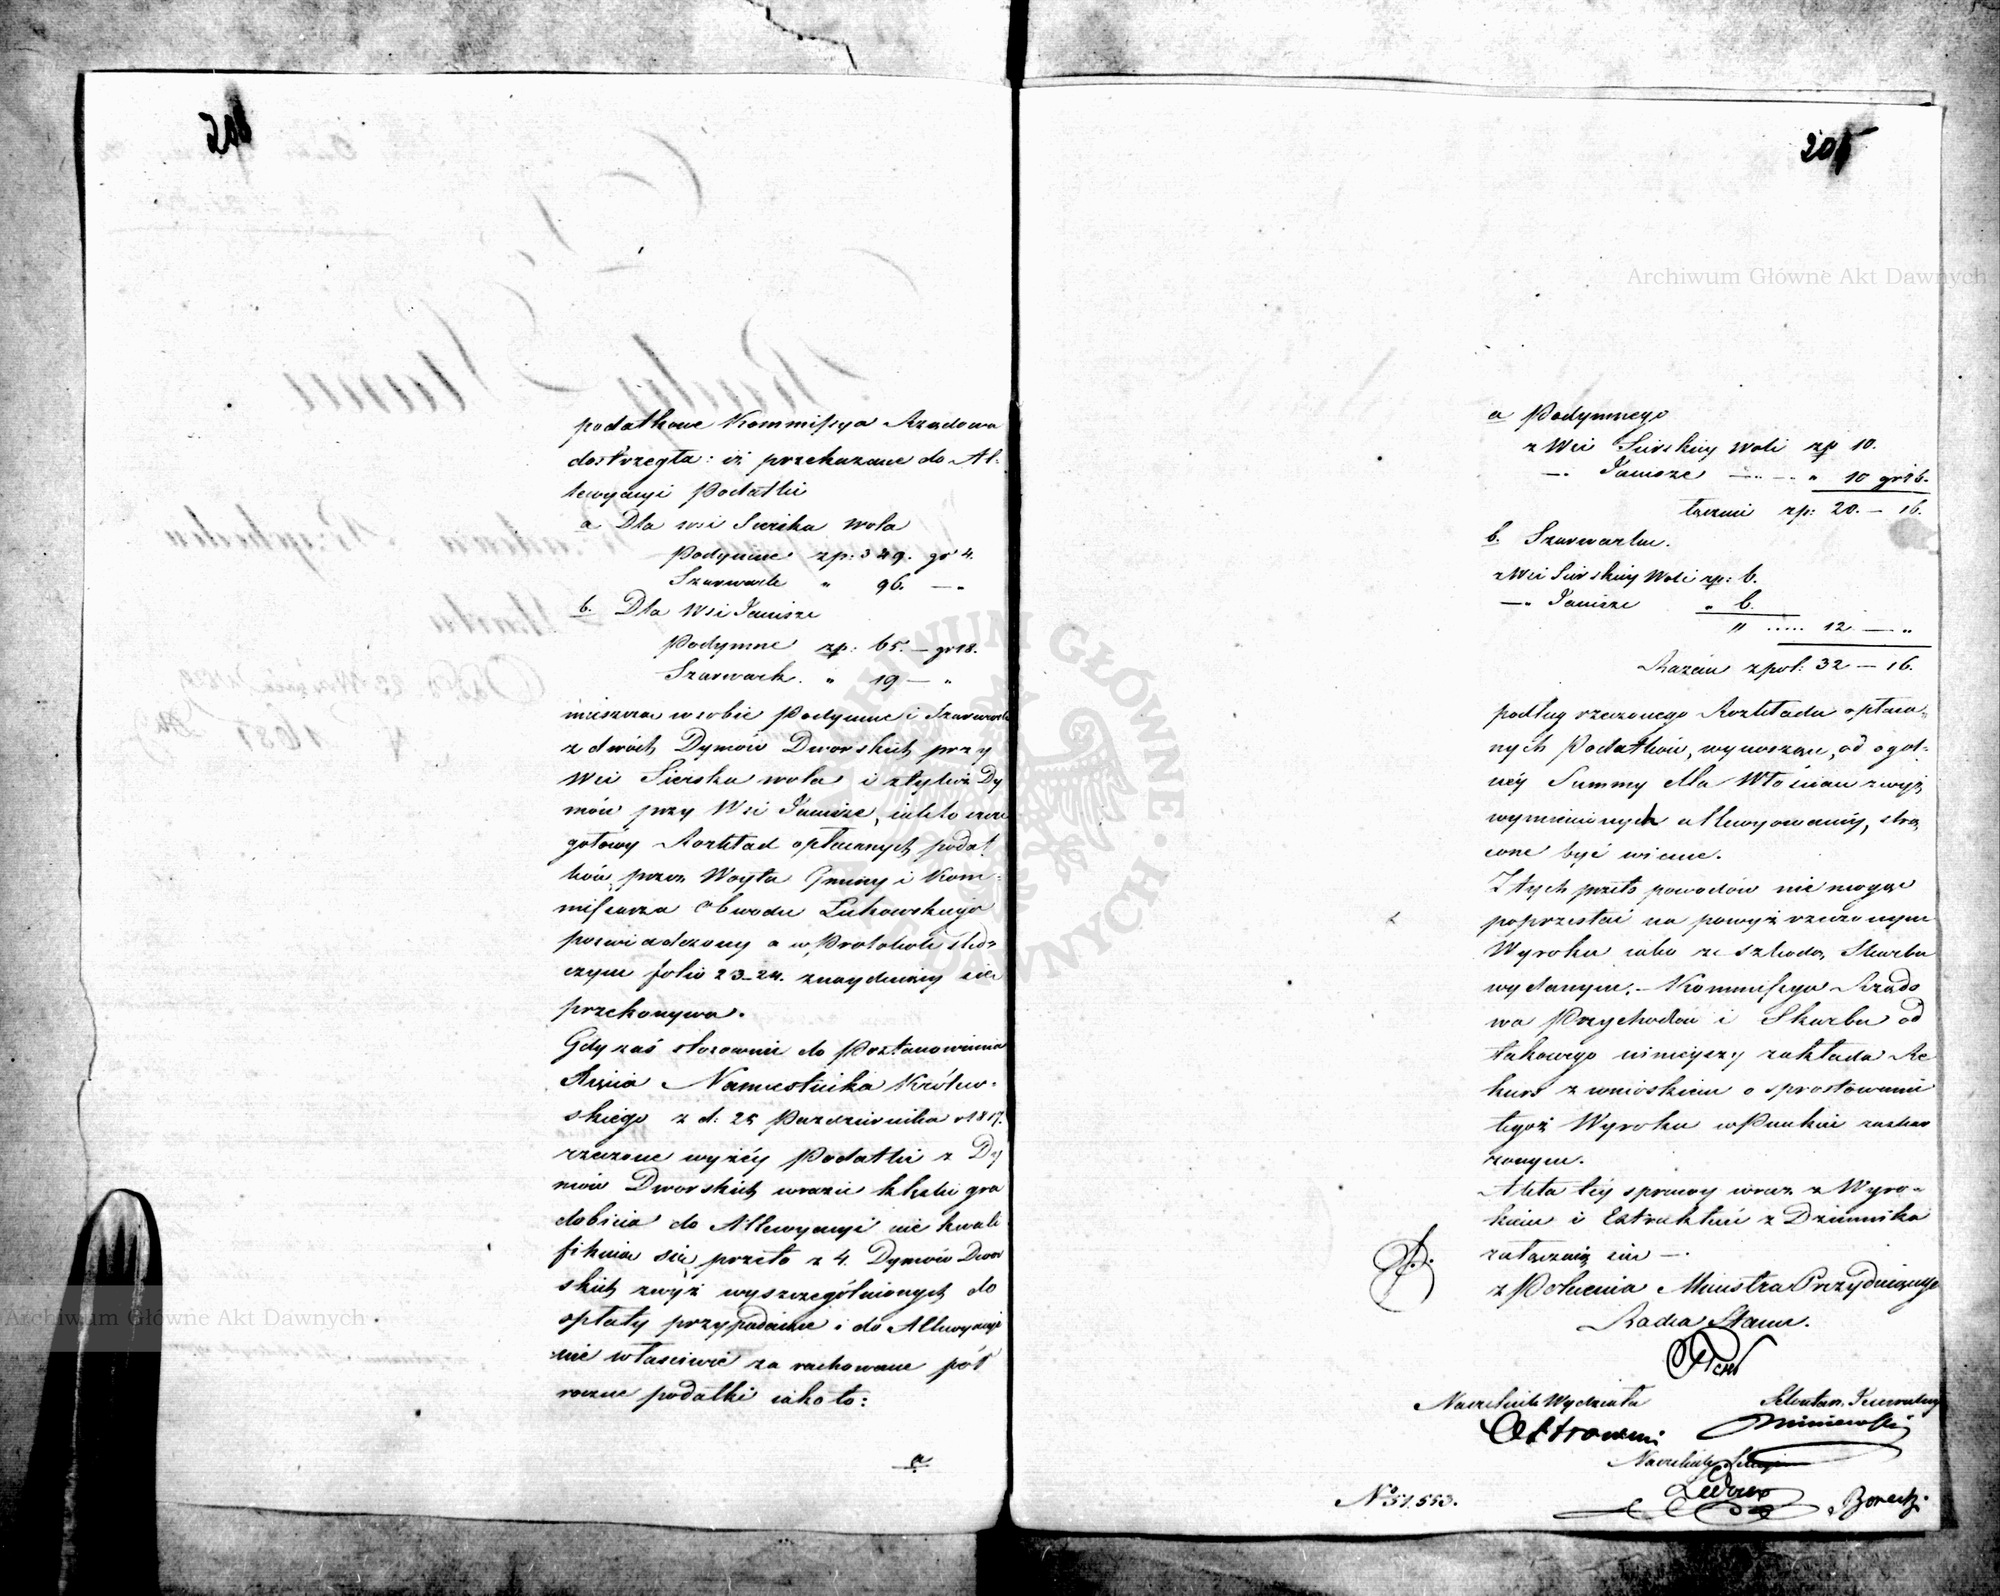 205
podatkowe Kommissya Rządowa
dostrzegła: iż przekazane do Al-
lewyacyi Podatki
a Dla wsi Sierska wola
Podymne zp: 349. gr 4.
Szarwark " 96. — "
b. Dla Wsi Janisze
Podymne zp: 65. — gr 18.
Szarwark. " 19 — "
mieszczą w sobie Podymne i Szarwark
z dwóch Dymów Dworskich przy
Wsi Sierska wola i z tyluż Dy
mów przy Wsi Janisze, iak to szcze
gółowy Rozkład opłacanych podat
ków przez Woyta Gminy i Kom-
missarza Obwodu Łukowskiego
poświadczony a w Protokole śled-
czym folio 23-24. znayduiący się
przekonywa.
Gdy zaś stosownie do Postanowienia
Xięcia Namiestnika Królew-
skiego z d: 25 Października r 1817.
rzeczone wyżéy Podatki z Dy
mów Dworskich w razie klęski gra
dobicia do Allewyacyi nie kwali
fikuią się, przeto z 4. Dymów Dwor
skich zwyż wyszczególnionych do
opłaty przypadaiące i do Allewyacyi
nie właściwie zarachowane pół
roczne podatki iako to:
a
205
a Podymnego
z Wsi Sierskiey Woli zp 10.
— " Janisze — " — " 10 gr 16.
łącznie zp: 20. — 16.
b. Szarwarku.
z Wsi Sierskiey Woli zp: 6.
— " Janisze " 6.
" ..... 12 — "
Razem zpol: 32 — 16.
podług rzeczonego Rozkładu opłaca-
nych Podatków, wynoszące, od ogól-
néy Summy dla Włościan zwyż
wymienionych allewyowanéy, strą
cone być winne.
Z tych przeto powodów nie mogąc
poprzestać na powyż rzeczonym
Wyroku iako ze szkodą Skarbu
wydanym. — Kommissya Rządo
wa Przychodów i Skarbu od
takowego ninieyszy zakłada Re
kurs z wnioskiem o sprostowanie
tegoż Wyroku w Punkcie zaskar
żonym.
Akta téy sprawy wraz z Wyro-
kiem i Extraktem z Dziennika
załączaią się —.
z Polecenia Ministra Prezyduiącego
Radca Stanu.
Naczelnik Wydziału
Sekretarz Jeneralny
Naczelnik Sekcyi
Ledoux
Borecki
No 51.553.
Archiwum Główne Akt Dawnych
Archiwum Główne Akt Dawnych
ARCHIWUM GŁÓWNE AKT DAWNYCH